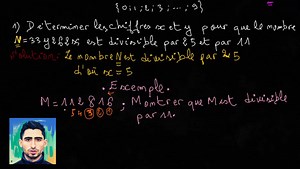 {0;1;2;3;...;9}
1) Déterminer les chiffres x et y pour que le nombre
N=33y2628x est divisible par 25 et par 11
Solution: Le nombre N est divisible par 25
d'où x=5
. Exemple.
M=112816; Montrer que M est divisible
5 4 3 2 1
par 11.